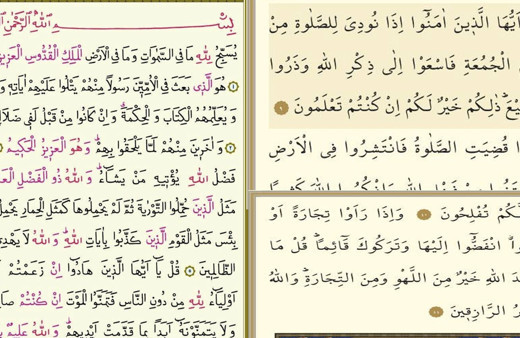 بِسْمِ اللّٰهِ الرَّحْمٰنِ
يُسَبِّحُ لِلّٰهِ مَا فِي السَّمٰوَاتِ وَمَا فِي الْاَرْضِ الْمَلِكِ الْقُدُّوسِ الْعَزِيزِ
١ هُوَ الَّذِي بَعَثَ فِي الْاُمِّيّنَ رَسُولًا مِنْهُمْ يَتْلُوا عَلَيْهِمْ اٰيَاتِهِ
وَيُعَلِّمُهُمُ الْكِتَابَ وَالْحِكْمَةَ وَاِنْ كَانُوا مِنْ قَبْلُ لَفِي ضَلَا
٢ وَاٰخَرِينَ مِنْهُمْ لَمَّا يَلْحَقُوا بِهِمْ وَهُوَ الْعَزِيزُ الْحَكِيمُ ٣
فَضْلُ اللّٰهِ يُؤْتِيهِ مَنْ يَشَاءُ وَاللّٰهُ ذُو الْفَضْلِ
مَثَلُ الَّذِينَ حُمِّلُوا التَّوْرٰيةَ ثُمَّ لَمْ يَحْمِلُوهَا كَمَثَلِ الْحِمَارِ يَحْمِلُ
بِئْسَ مَثَلُ الْقَوْمِ الَّذِينَ كَذَّبُوا بِاٰيَاتِ اللّٰهِ وَاللّٰهُ لَا يَهْدِي
الظَّالِمِينَ ٥ قُلْ يَا اَيُّهَا الَّذِينَ هَادُوا اِنْ زَعَمْتُمْ
اَوْلِيَاءُ لِلّٰهِ مِنْ دُونِ النَّاسِ فَتَمَنَّوُا الْمَوْتَ اِنْ كُنْتُمْ صَا
وَلَا يَتَمَنَّوْنَهُ اَبَدًا بِمَا قَدَّمَتْ اَيْدِيهِمْ وَاللّٰهُ عَلِيمٌ
اَيُّهَا الَّذِينَ اٰمَنُوا اِذَا نُودِيَ لِلصَّلٰوةِ مِنْ
الْجُمُعَةِ فَاسْعَوْا اِلٰى ذِكْرِ اللّٰهِ وَذَرُوا
يْعَ ذٰلِكُمْ خَيْرٌ لَكُمْ اِنْ كُنْتُمْ تَعْلَمُونَ ٩
قُضِيَتِ الصَّلٰوةُ فَانْتَشِرُوا فِي الْاَرْضِ
فَضْلِ اللّٰهِ وَاذْكُرُوا اللّٰهَ كَثِيرًا
لَّكُمْ تُفْلِحُونَ ١٠ وَاِذَا رَاَوْا تِجَارَةً اَوْ
انْفَضُّوا اِلَيْهَا وَتَرَكُوكَ قَائِمًا قُلْ مَا
دَ اللّٰهِ خَيْرٌ مِنَ اللَّهْوِ وَمِنَ التِّجَارَةِ وَاللّٰهُ
رُ الرَّازِقِينَ ١١